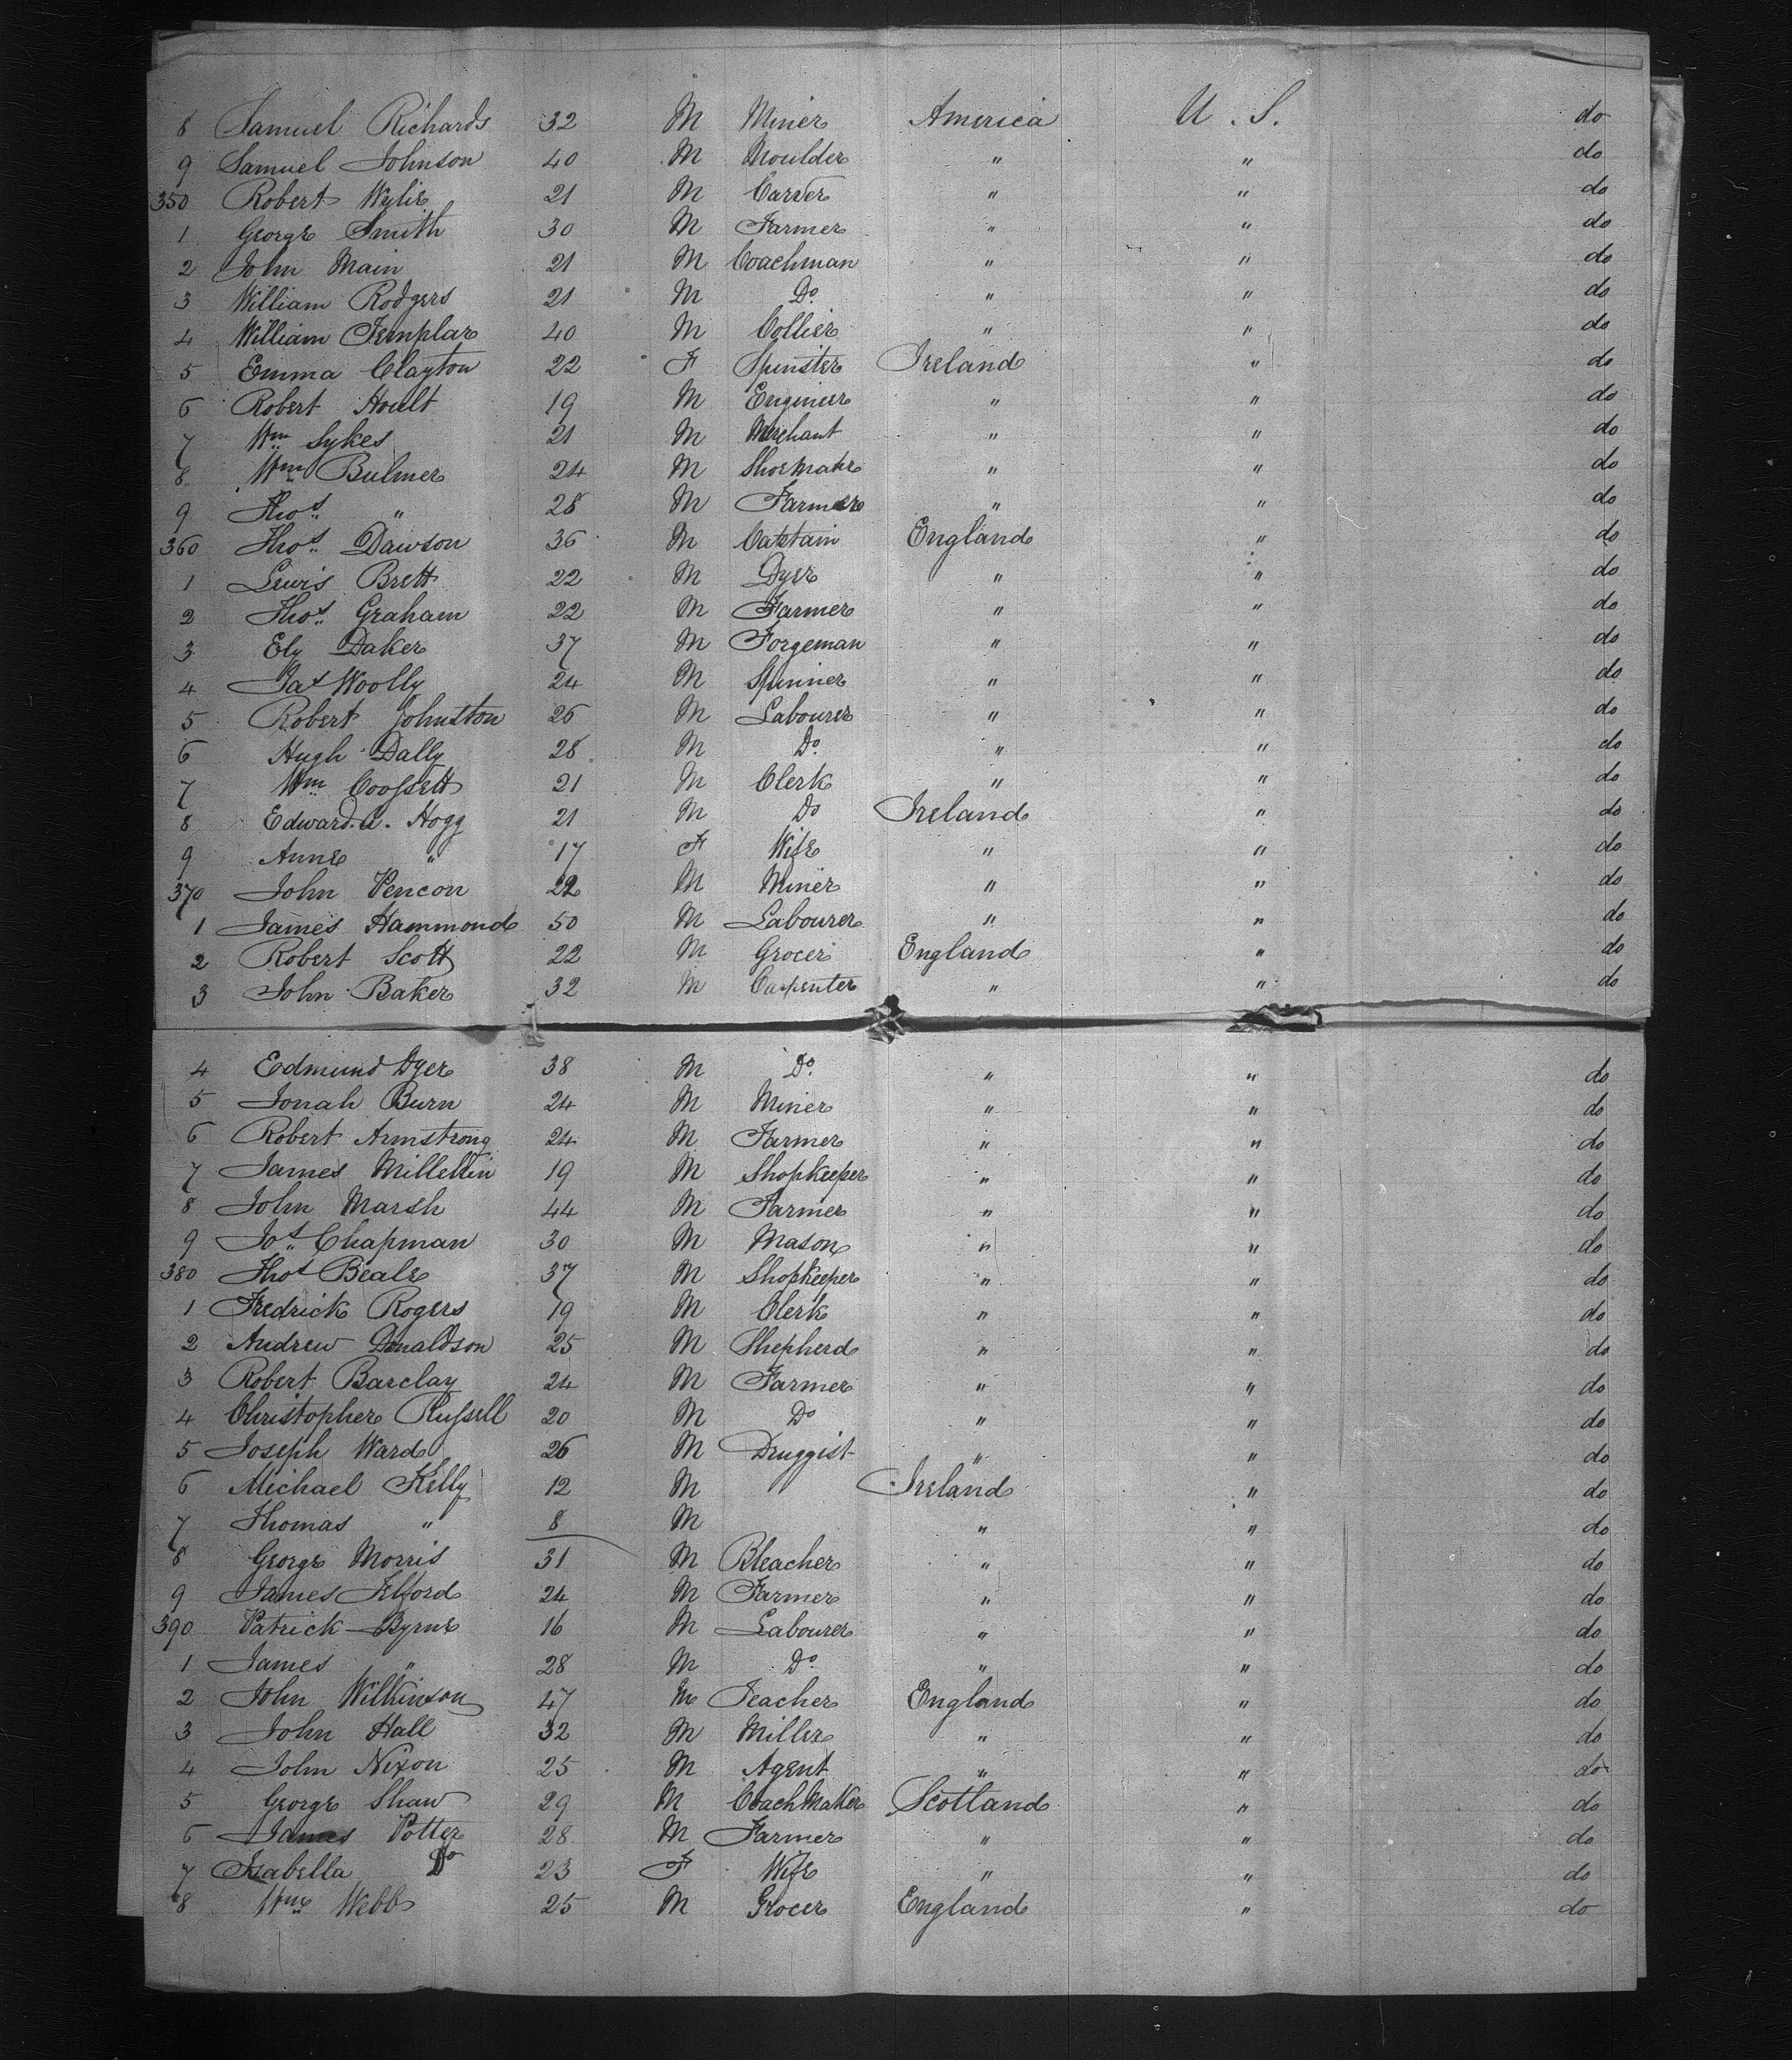 8 Samuel Richards 32 M Miner America U. S. do
9 Samuel Johnson 40 M Moulder " " do
350 Robert Wylie 21 M Carver " " do
1 George Smith 30 M Farmer " " do
2 John Main 21 M Coachman " " do
3 William Rodgers 21 M Do " " do
4 William Templar 40 M Collier " " do
5 Emma Clayton 22 F Spinster Ireland " do
6 Robert Hoult 19 M Engineer " " do
7 Wm Sykes 21 M Merchant " " do
8 Wm Bulmer 24 M Shoemake " " do
9 Thos " 28 M Farmer " " do
360 Thos Dawson 36 M Captain England " do
1 Lewis Brett 22 M Dyer " " do
2 Thos Graham 22 M Farmer " " do
3 Ely Daker 37 M Forgeman " " do
4 Jas Woolly 24 M Spinner " " do
5 Robert Johnston 26 M Labourer " " do
6 Hugh Dally 28 M Do " " do
7 Wm 21 M Clerk " " do
8 Edward. A. Hogg 21 M Do Ireland " do
9 Anne " 17 F Wife " " do
370 John Pencon 22 M Miner " " do
1 James Hammond 50 M Labourer " " do
2 Robert Scott 22 M Grocer England " do
3 John Baker 32 M Carpenter " " do
4 Edmund Dyer 38 M Do " " do
5 Jonah Burn 24 M Miner " " do
6 Robert Armstrong 24 M Farmer " " do
7 James 19 M Shopkeeper " " do
8 John Marsh 44 M Farmer " " do
9 Jos Chapman 30 M Mason " " do
380 Thos Beale 37 M Shopkeeper " " do
1 Fredrick Rogers 19 M Clerk " " do
2 Andrew Donaldson 25 M Shepherd " " do
3 Robert Barclay 24 M Farmer " " do
4 Christopher Russell 20 M Do " " do
5 Joseph Ward 26 M Druggist " " do
6 Michael Kelly 12 M Ireland " do
7 Thomas " 8 M " " do
8 George Morris 31 M Bleacher " " do
9 James Telford 24 M Farmer " " do
390 Patrick Byrne 16 M Labourer " " do
1 James " 28 M Do " " do
2 John Wilkinson 47 M Teacher England " do
3 John Hall 32 M Miller " " do
4 John Nixon 25 M Agent " " do
5 George Shaw 29 M CoachMaker Scotland " do
6 James Potter 28 M Farmer " " do
7 Isabella Do 23 F Wife " " do
8 Wm Webb 25 M Grocer England " do